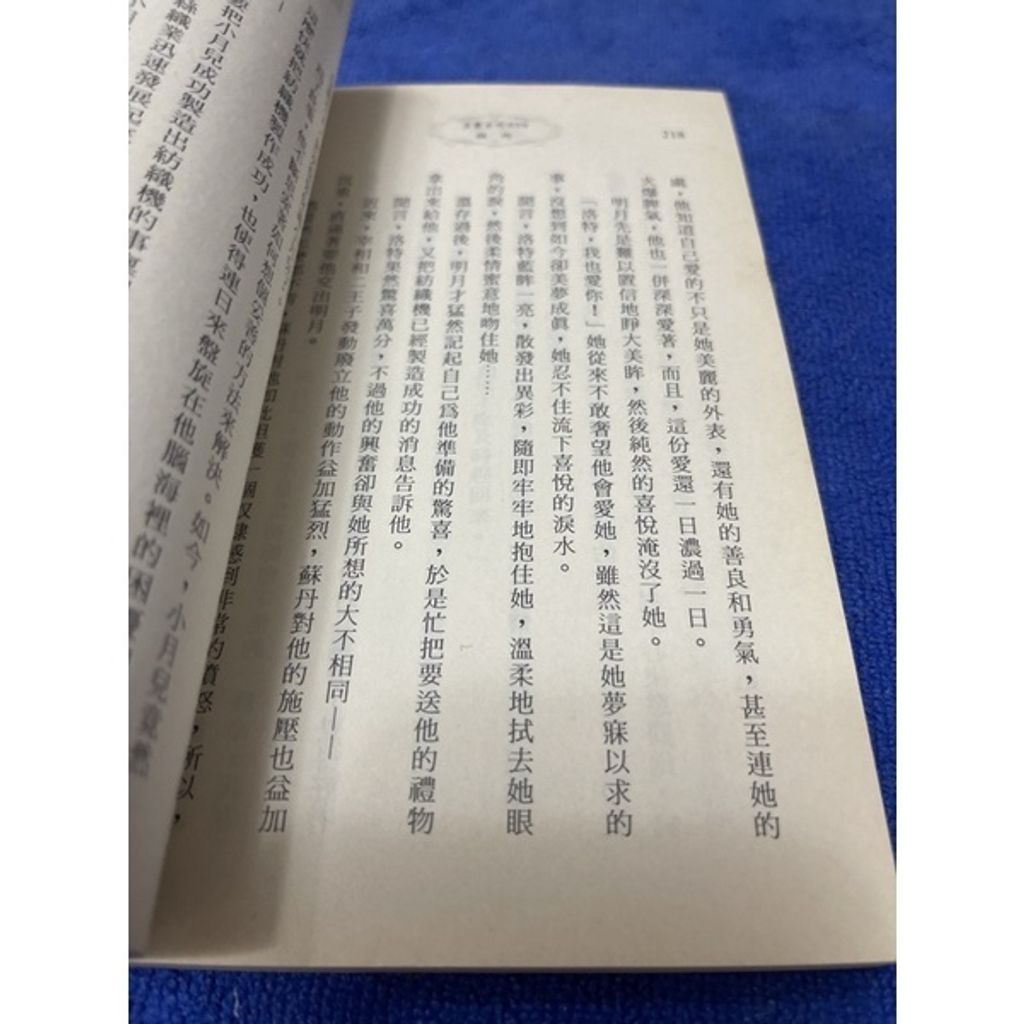 218
處，他知道自己愛的不只是她美麗的外表，還有她的善良和勇氣，甚至連她的
火爆脾氣，他也一併深深愛著，而且，這份愛還一日濃過一日。
明月先是難以置信地睜大美眸，然後純然的喜悅淹沒了她。
「洛特，我也愛你！」她從來不敢奢望他會愛她，雖然這是她夢寐以求的
事，沒想到如今卻美夢成真，她忍不住流下喜悅的淚水。
聞言，洛特藍眸一亮，散發出異彩，隨即牢牢地抱住她，溫柔地拭去她眼
角的淚，然後柔情蜜意地吻住她……
溫存過後，明月才猛然記起自己為他準備的驚喜，於是忙把要送他的禮物
拿出來給他，又把紡織機已經製造成功的消息告訴他。
聞言，洛特果然驚喜萬分，不過他的興奮卻與她所想的大不相同——
近來，宰相和二王子發動廢立他的動作益加猛烈，蘇丹對他的施壓也益加
，直逼著要他交出明月。
一個奴隸感到非常的憤怒，所以，
的方法來解決。如今，小月兒竟然
把紡織機製作成功，也使得連日來盤旋在他腦海裡的困憂
把小月兒成功製造出紡織機的事
絲織業迅速發展起來